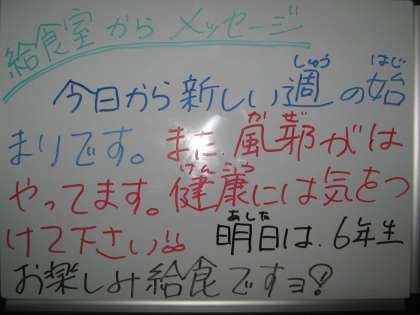 給食室からメッセージ
今日から新しい週の始
まりです。また、風邪がは
やってます。健康には気をつ
けて下さい!! 明日は、6年生
お楽しみ給食ですョ!